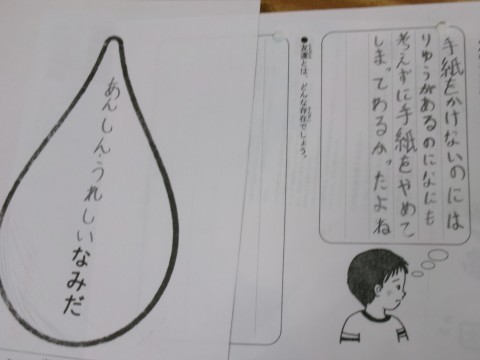 手紙をかけないのには
りゆうがあるのになにも
考えずに手紙をやめて
しまってわるかったよね
●友達とは、どんな存在でしょう。
あんしん・うれしい
なみだ